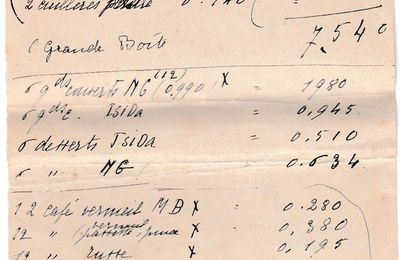 ( 2 cuillères 0.140
( Grande Boîte 7.540
6 gds couverts MG (12) (0,990) X = 1980
6 gds c. Isida = 0,945.
6 desserts Isida = 0,510
6 " MG = 0.634.
12 café vermeil MB X = 0.280
12 " vermeil X = 0,380
12 " russe X = 0,195